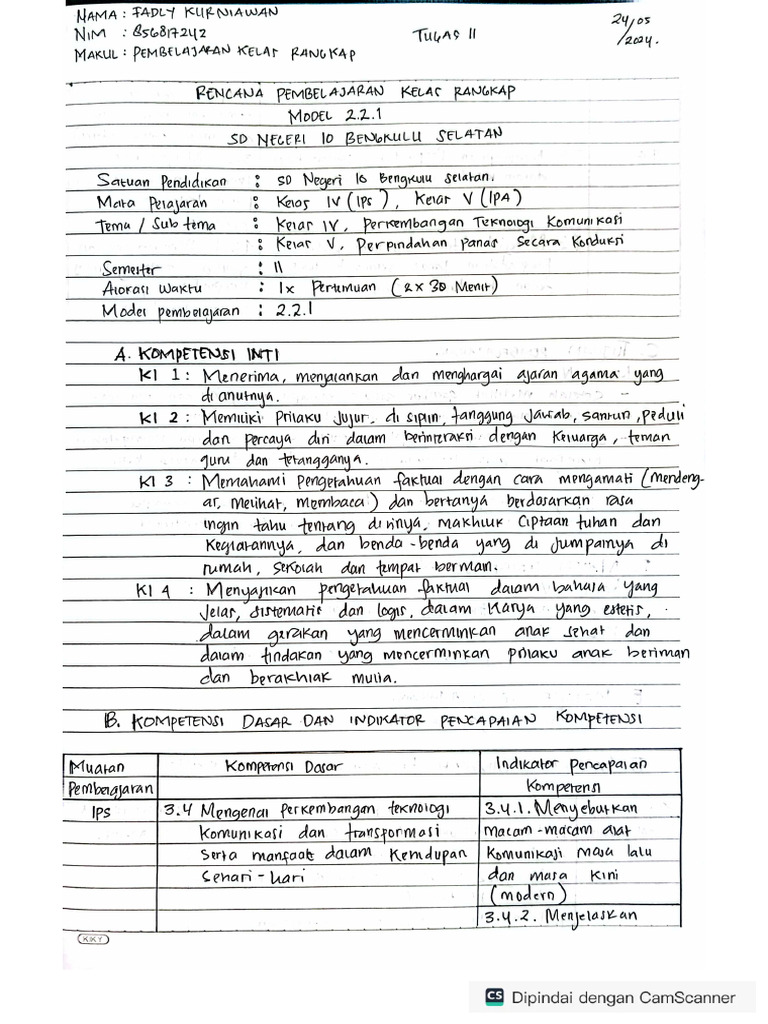 NAMA : FADLY KURNIAWAN
NIM : 856817242
MAKUL : PEMBELAJARAN KELAS RANGKAP
TUGAS II
24/05
/2024.
RENCANA PEMBELAJARAN KELAS RANGKAP
MODEL 2.2.1
SD NEGERI 10 BENGKULU SELATAN
Satuan Pendidikan : SD Negeri 10 Bengkulu Selatan.
Mata Pelajaran : Kelas IV (IPS), Kelas V (IPA)
Tema / Sub tema : Kelas IV, Perkembangan Teknologi Komunikasi
: Kelas V, Perpindahan Panas Secara Konduksi
Semester : II
Alokasi Waktu : 1x Pertumuan (2 x 30 Menit)
Model pembelajaran : 2.2.1
A. KOMPETENSI INTI
KI 1 : Menerima, menjalankan dan menghargai ajaran agama yang
di anutnya.
KI 2 : Memiliki Prilaku Jujur, di siplin, tanggung Jawab, santun, Peduli
dan percaya diri dalam berinteraksi dengan Keluarga, teman
guru dan tetangganya.
KI 3 : Memahami Pengetahuan faktual dengan cara mengamati (mendeng-
ar, melihat, membaca) dan bertanya berdasarkan rasa
ingin tahu tentang dirinya, makhluk Ciptaan tuhan dan
Kegiatannya, dan benda-benda yang di Jumpainya di
rumah, sekolah dan tempat bermain.
KI 4 : Menyajikan pengetahuan faktual dalam bahasa yang
Jelas, sistematis dan logis, dalam Karya yang estetis,
dalam gerakan yang mencerminkan anak sehat dan
dalam tindakan yang mencerminkan prilaku anak beriman
dan berakhlak mulia.
B. KOMPETENSI DASAR DAN INDIKATOR PENCAPAIAN KOMPETENSI
Muatan
Pembelajaran
Kompetensi Dasar
Indikator Pencapaian
Kompetensi
IPS
3.4 Mengenal Perkembangan teknologi
Komunikasi dan transformasi
Serta manfaat dalam Kehidupan
Sehari-hari
3.4.1. Menyebutkan
macam-macam alat
Komunikasi masa lalu
dan masa Kini
(modern)
3.4.2. Menjelaskan
KKY
CS Dipindai dengan CamScanner